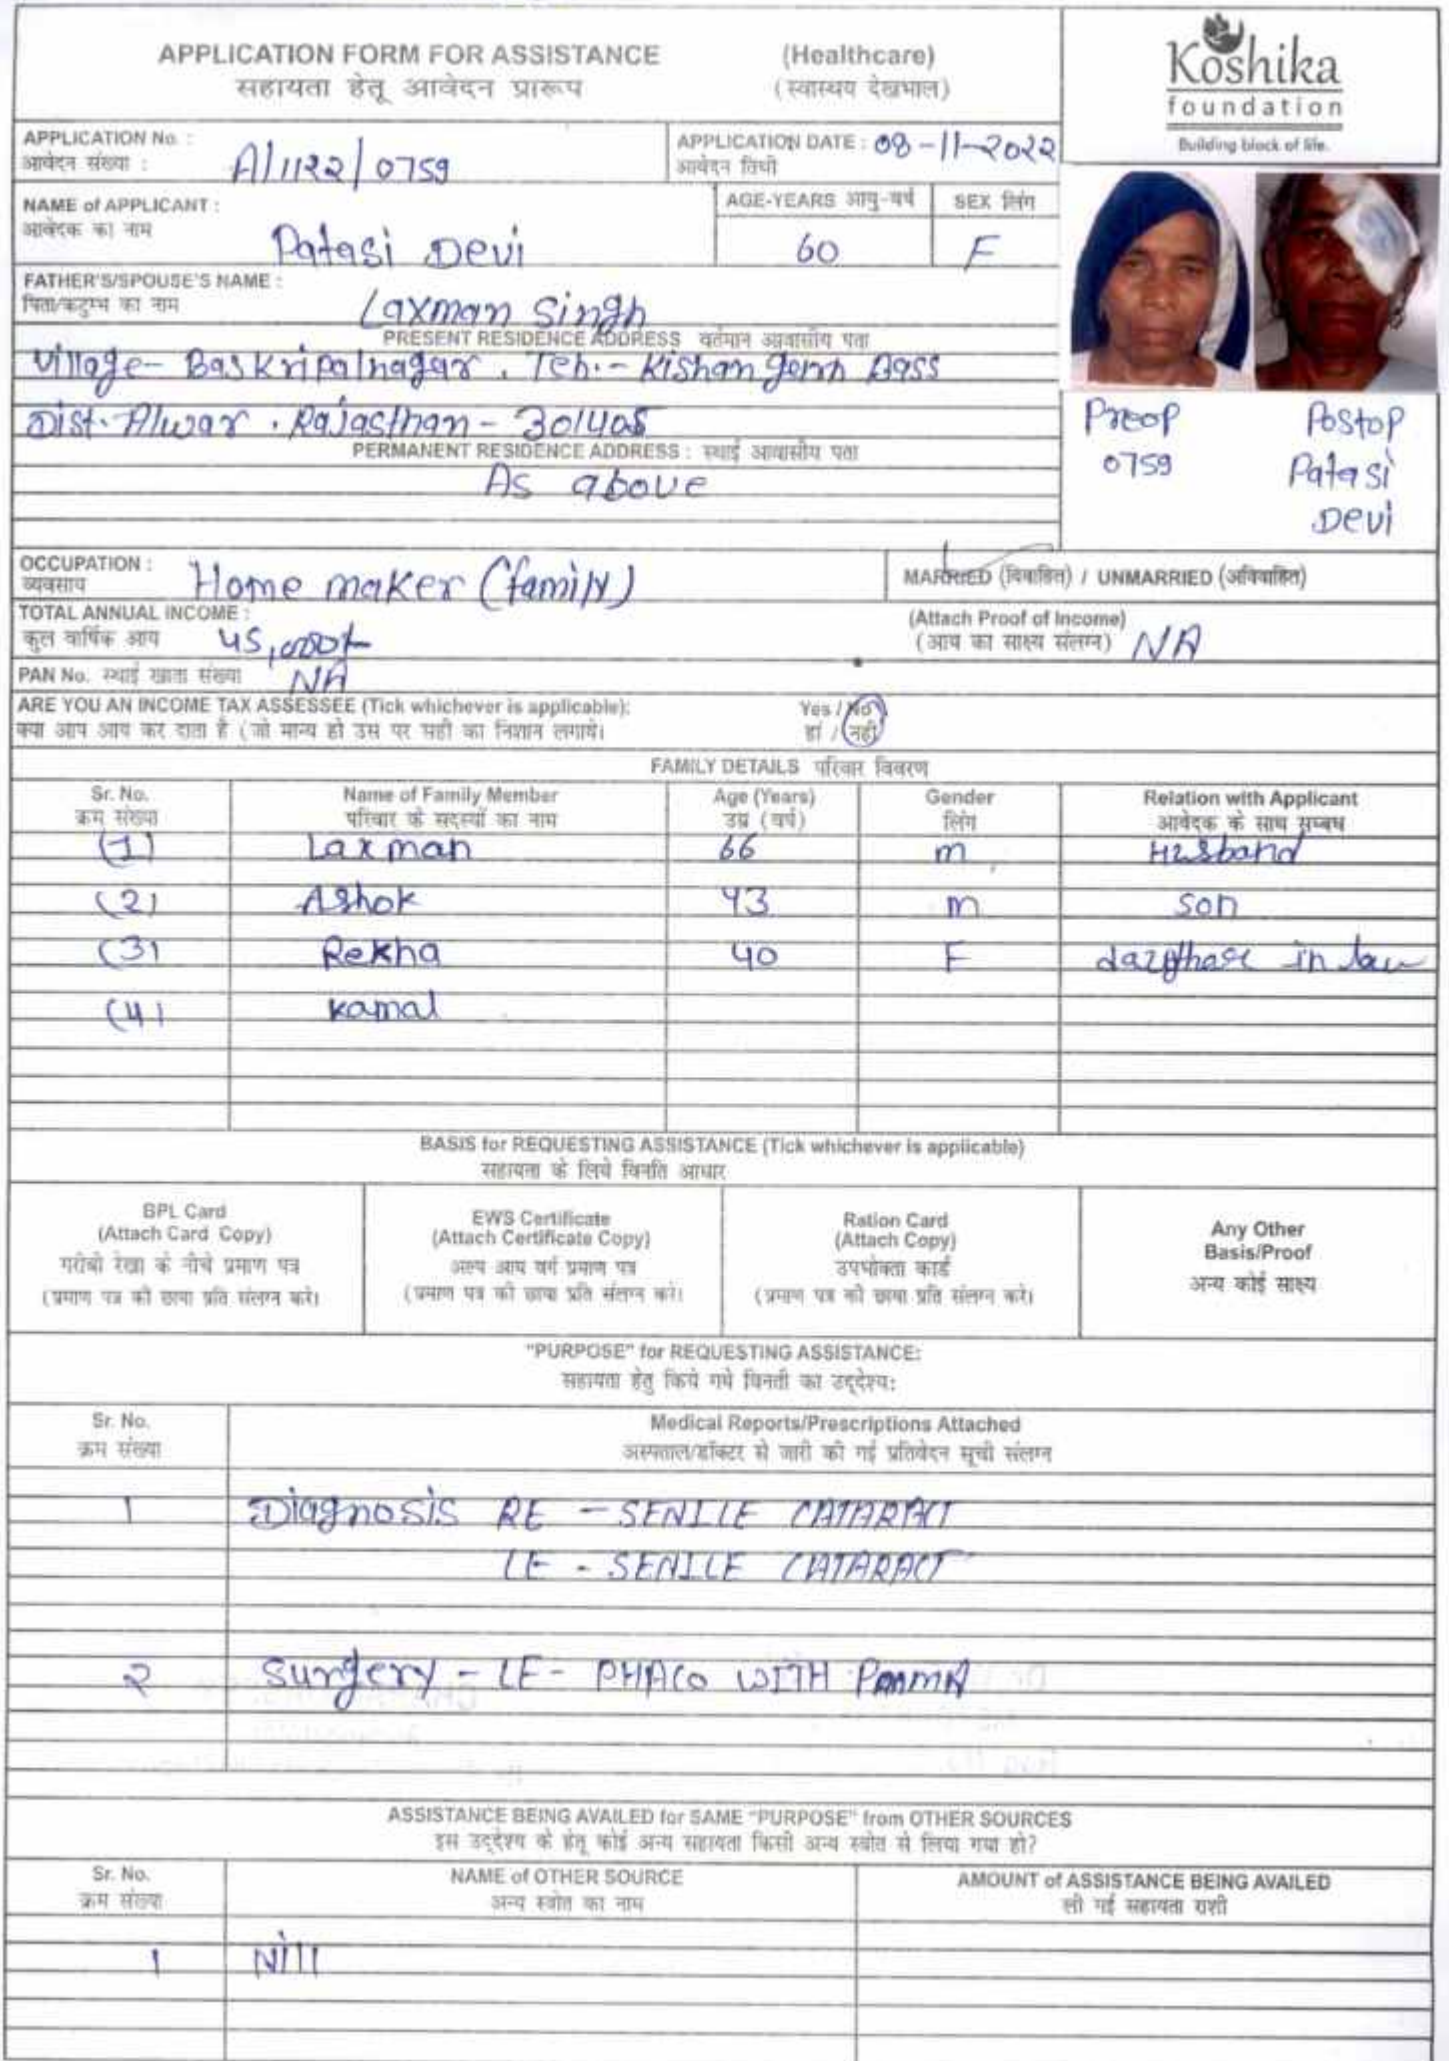 APPLICATION FORM FOR ASSISTANCE (Healthcare)
सहायता हेतू आवेदन प्रारूप (स्वास्थय देखभाल)
Koshika
foundation
Building block of life.
APPLICATION No. :
आवेदन संख्या :
A/1122/0759
APPLICATION DATE : 08-11-2022
आवेदन तिथी
NAME of APPLICANT :
आवेदक का नाम
Patasi Devi
AGE-YEARS आयु-वर्ष
60
SEX लिंग
F
FATHER'S/SPOUSE'S NAME :
पिता/कटुम्भ का नाम
Laxman Singh
PRESENT RESIDENCE ADDRESS वर्तमान आवासीय पता
Village- Baskripalnagar. Teh.- Kishan
Dist. Alwar. Rajasthan- 301405
PERMANENT RESIDENCE ADDRESS : स्थाई आवासीय पता
As above
Preop Postop
0759 Patasi
Devi
OCCUPATION :
व्यवसाय
Home maker (family)
MARRIED (विवाहित) / UNMARRIED (अविवाहित)
TOTAL ANNUAL INCOME :
कुल वार्षिक आय
45,000/-
(Attach Proof of Income)
(आय का साक्ष्य संलग्न) NA
PAN No. स्थाई खाता संख्या NA
ARE YOU AN INCOME TAX ASSESSEE (Tick whichever is applicable): Yes / No
क्या आप आय कर दाता है (जो मान्य हो उस पर सही का निशान लगाये। हां / नही
FAMILY DETAILS परिवार विवरण
Sr. No. Name of Family Member Age (Years) Gender Relation with Applicant
क्रम संख्या परिवार के सदस्यों का नाम उम्र (वर्ष) लिंग आवेदक के साथ सम्बध
(1) Laxman 66 m Husband
(2) Ashok 43 m son
(3) Rekha 40 F in law
(4) Kamal
BASIS for REQUESTING ASSISTANCE (Tick whichever is applicable)
सहायता के लिये विनति आधार
BPL Card
(Attach Card Copy)
गरीबी रेखा के नीचे प्रमाण पत्र
(प्रमाण पत्र की छाया प्रति संलग्न करे।
EWS Certificate
(Attach Certificate Copy)
अल्प आय वर्ग प्रमाण पत्र
(प्रमाण पत्र की छाया प्रति संलग्न करे।
Ration Card
(Attach Copy)
उपभोक्ता कार्ड
(प्रमाण पत्र की छाया प्रति संलग्न करे।
Any Other
Basis/Proof
अन्य कोई साक्ष्य
"PURPOSE" for REQUESTING ASSISTANCE:
सहायता हेतु किये गये विनती का उद्देश्य:
Sr. No. Medical Reports/Prescriptions Attached
क्रम संख्या अस्पताल/डॉक्टर से जारी की गई प्रतिवेदन सूची संलग्न
1 Diagnosis RE - SENILE CATARACT
LE - SENILE CATARACT
2 Surgery - LE - PHACO WITH
ASSISTANCE BEING AVAILED for SAME "PURPOSE" from OTHER SOURCES
इस उद्देश्य के हेतू कोई अन्य सहायता किसी अन्य स्त्रोत से लिया गया हो?
Sr. No. NAME of OTHER SOURCE AMOUNT of ASSISTANCE BEING AVAILED
क्रम संख्या अन्य स्त्रोत का नाम ली गई सहायता राशी
1 Nill